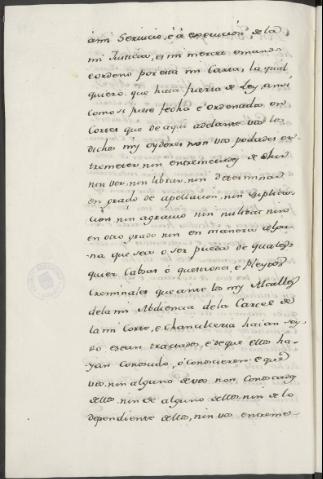 ami Servicio, é á execucion de la
mi Justicia, es mi merced é mando
é ordeno por esta mi Carta, la qual
quiero que haia fuerza de Ley, ansi
como si fuese fecha é ordenada en
Cortes que de aqui adelante vos los
dichos mis oydores non vos podades en
tremeter nin entremetades de
nin ver, nin librar, nin determinar
en grado de apelacion, nin suplicac
ion, nin agravio nin nulidad nin
en otro grado nin en manera algu
na que sea o ser pueda de qualesq
quier Cabsas ó questiones, é Pleytos
Criminales que ante los my Alcalldes
dela mi Abdiencia dela Carcel de
la mi Corte, é Chancilleria haian sey
do é sean tractados, é de que ellos ha-
yan Conoscido, ó conoscieren é que
vos, nin alguno de vos non Conoscades
dellos, nin de alguno dellos, nin de lo
dependiente dellos, nin vos entreme-